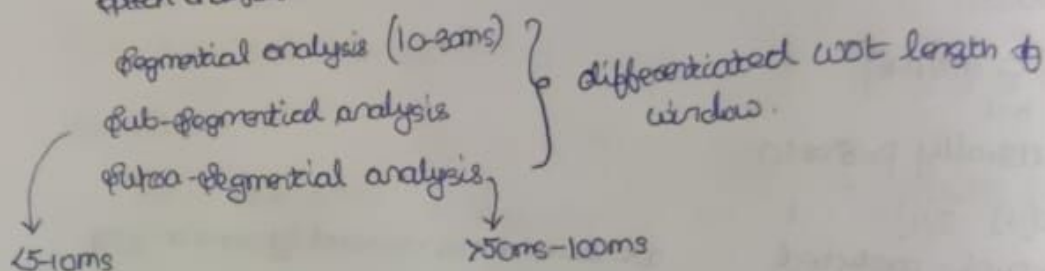 Segmential analysis (10-30ms)
Sub-segmential analysis
Supra-segmential analysis
differentiated wrt length of
window.
<5-10ms
>50ms-100ms